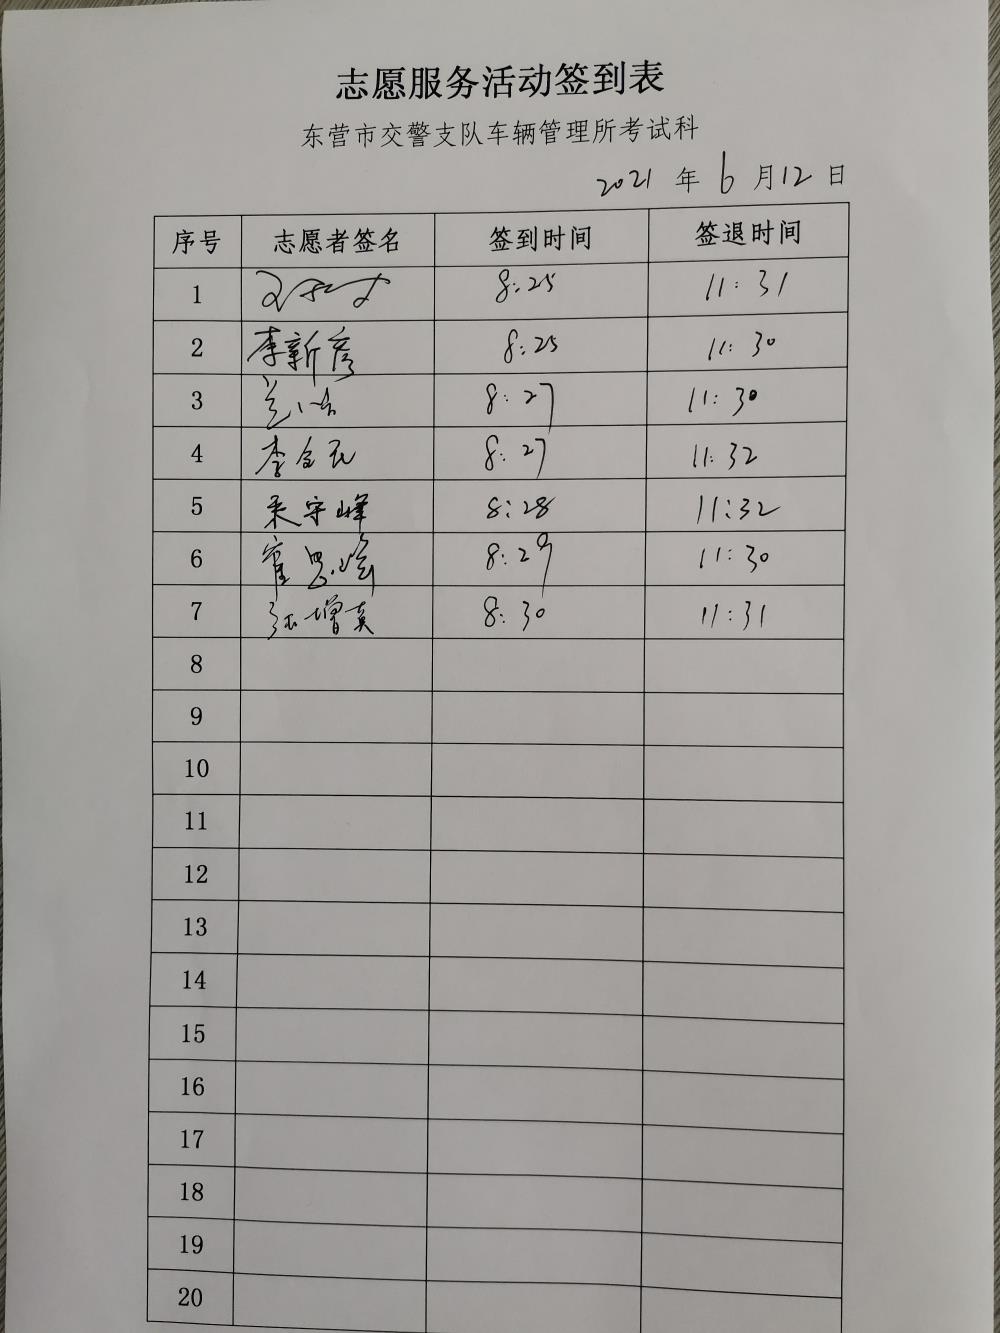 志愿服务活动签到表
东营市交警支队车辆管理所考试科
2021 年 6 月 12 日
序号 志愿者签名 签到时间 签退时间
1 8:25 11:31
2 李新彦 8:25 11:30
3 8:27 11:30
4 李 8:27 11:32
5 守峰 8:28 11:32
6 霍思 8:29 11:30
7 张增 8:30 11:31
8
9
10
11
12
13
14
15
16
17
18
19
20